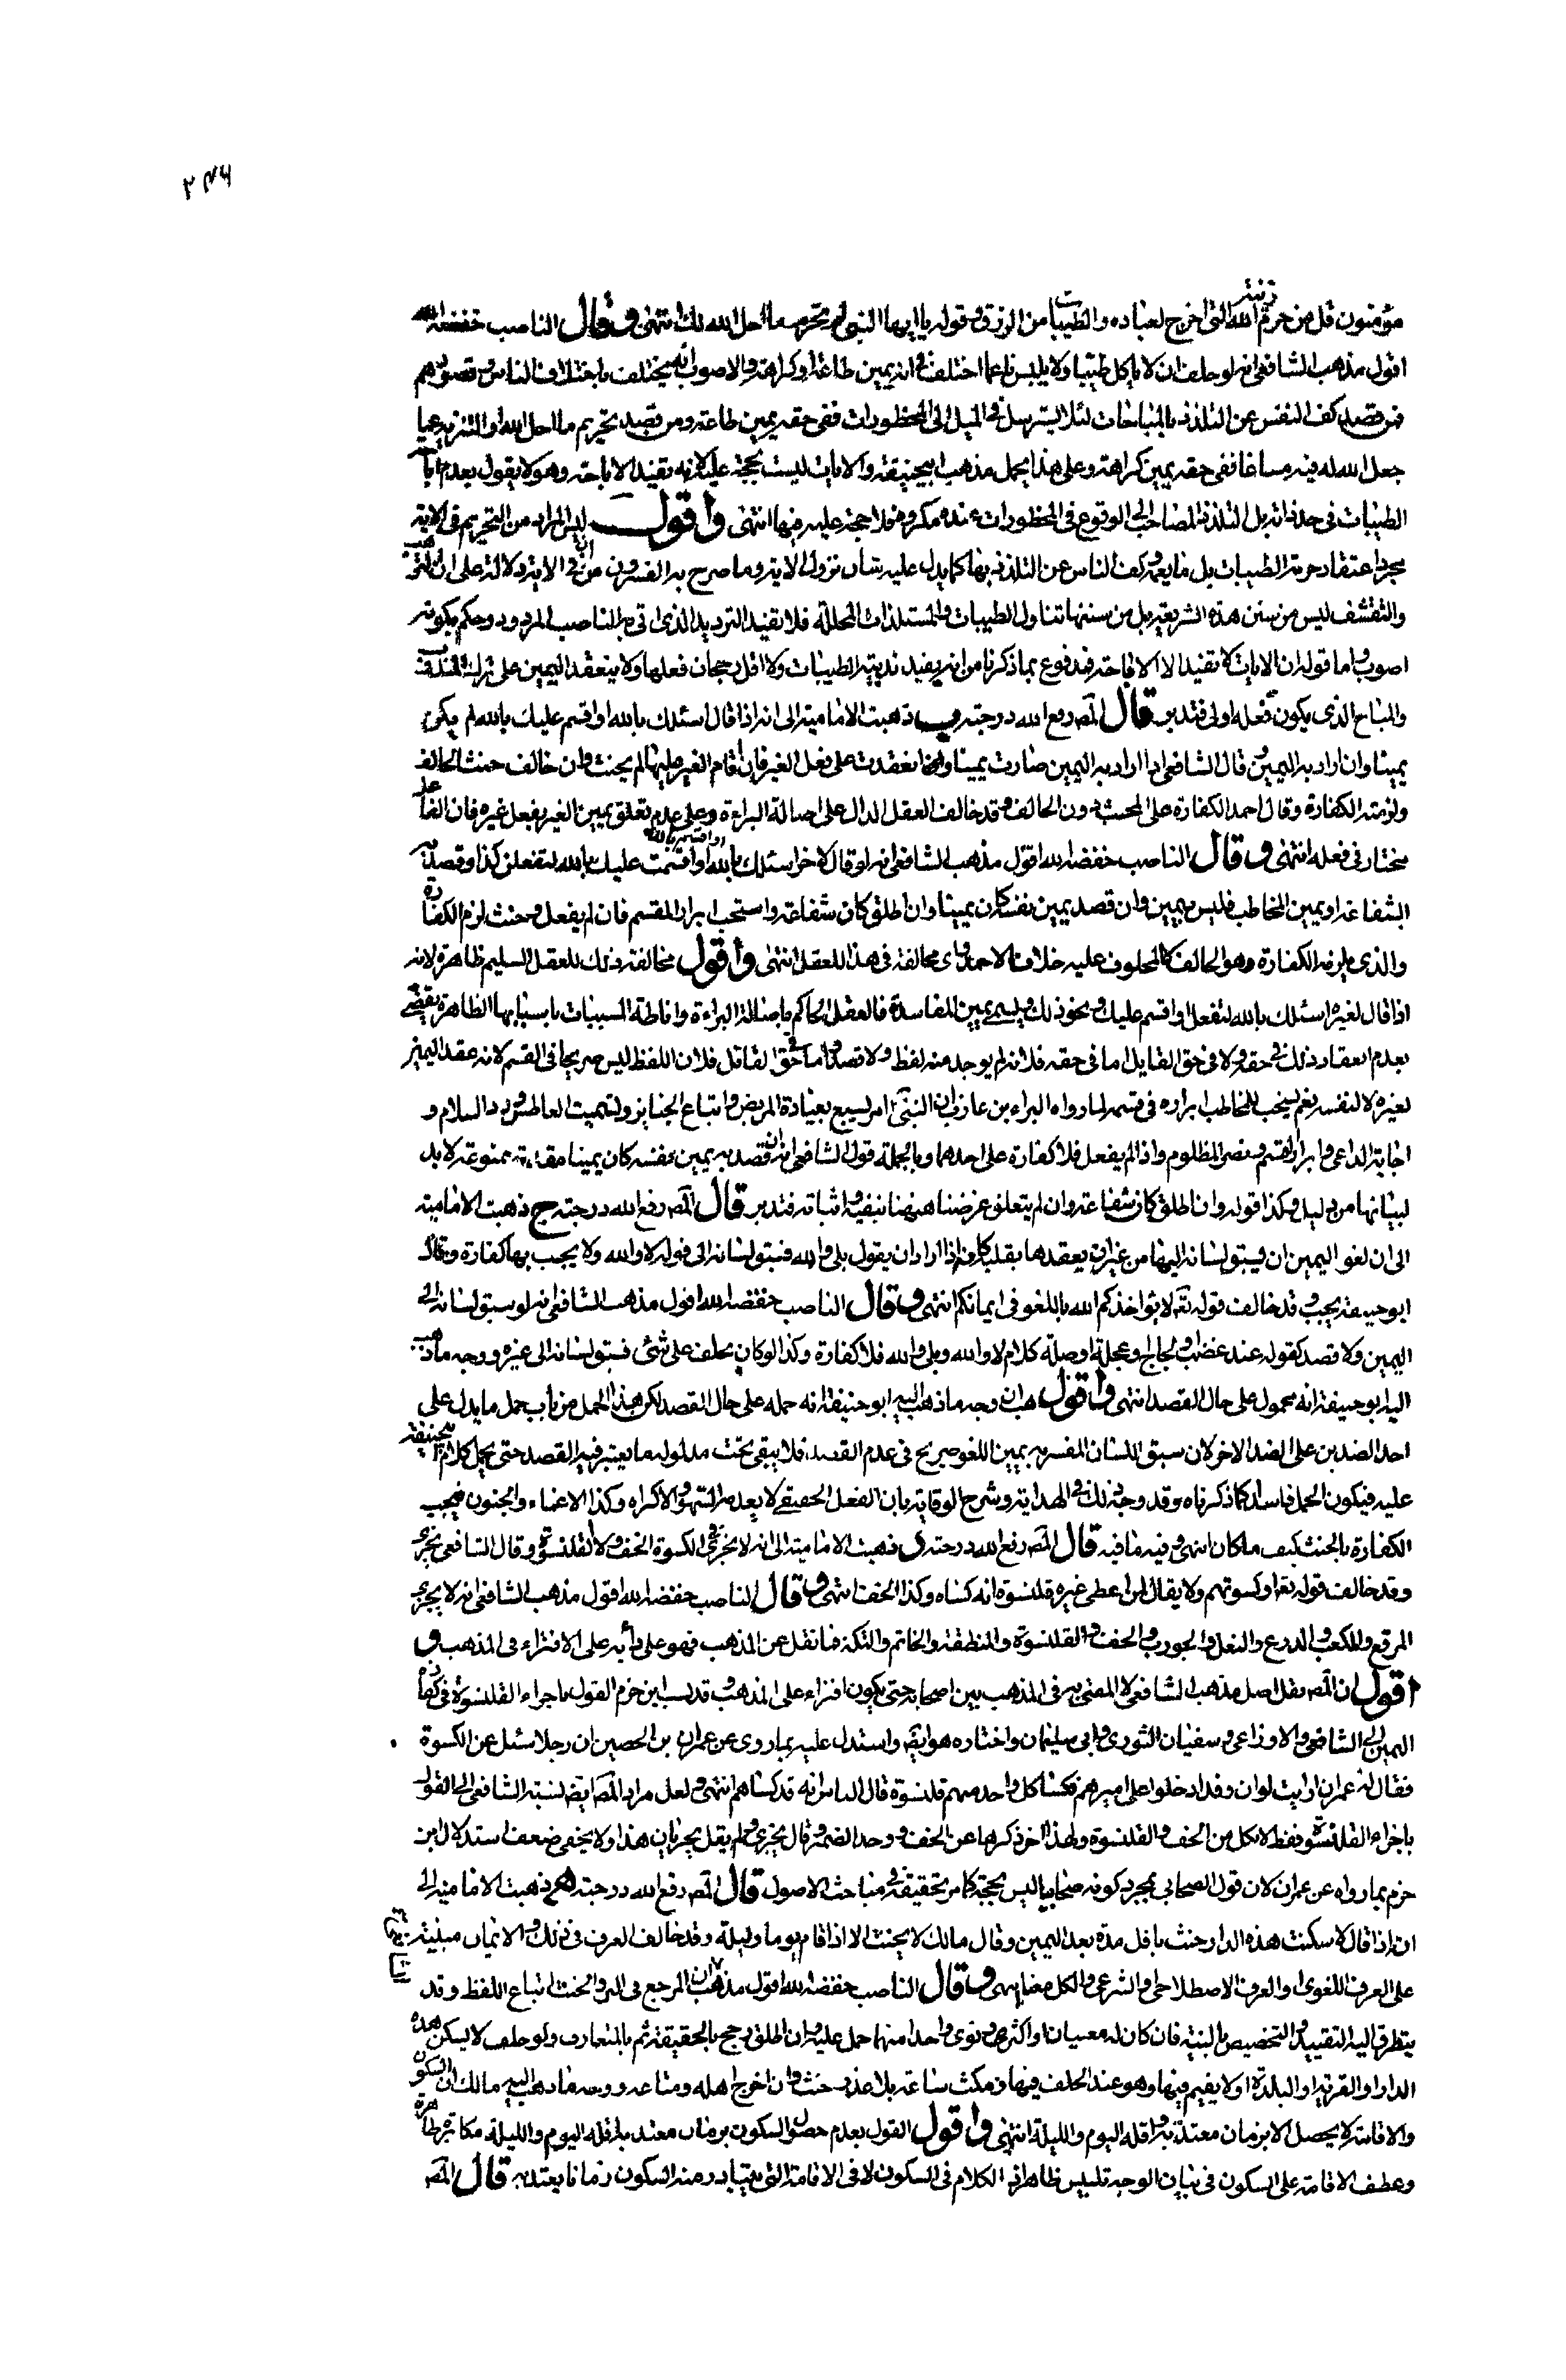 ۲۴۶
مؤمنون قل من حرم زينة الله التى اخرج لعباده والطيبات من الرزق وقوله يا ايها النبى لم تحرم ما احل الله لك انتهى وقال الناصب خفضه الله
اقول مذهب الشافعى انه لو حلف ان لا ياكل طيبا ولا يلبس ناعما اختلف فى انه يمين طاعة او كراهة والاصوب انه يختلف باختلاف الناس وقصودهم
فمن قصد كف النفس عن التلذذ بالمباحات لئلا يسترسل فى الميل الى المحظورات ففى حقه يمين طاعة ومن قصد تحريم ما احل الله او التنزيه عما
جعل الله له فيه مساغا ففى حقه يمين كراهة وعلى هذا يحمل مذهب ابيحنيفة والايات ليست بحجة عليه لانه تفيد الاباحة وهو لا يقول بعدم اباحة
الطيبات فى حد ذاته بل التلذذ لصاحب الوقوع فى المحظورات عنده مكروه فلا حجة عليه فيها انتهى واقول ليس المراد من التحريم فى الاية
مجرد اعتقاد حرمة الطيبات بل ما يعمه وكف الناس عن التلذذ بها كما يدل عليه شان نزول الاية وما صرح به المفسرون من ان فى الاية دلالة على ان الترهب
والتقشف ليس من سنن هذه الشريعة بل من سننها تناول الطيبات والمستلذات المحللة فلا تفيد الترديد الذى اتى به الناصب المردود وحكم بكونه
اصوب واما قوله ان الايات لا تفيد الا الاباحة فمدفوع بما ذكرنا من انه يفيد ندبية الطيبات ولا اقل رجحان فعلها ولا ينعقد اليمين على ترك المندوب
والمباح الذى يكون فعله اولى فتدبر قال المص رفع الله درجته ب ذهبت الامامية الى انه اذا قال اسئلك بالله او اقسم عليك بالله لم يكن
يمينا وان اراد به اليمين وقال الشافعى اذا اراد به اليمين صارت يمينا وانعقدت على فعل الغير فان اقام الغير عليها لم يحنث وان خالف حنث الحالف
ولزمته الكفارة وقال احمد الكفارة على المحنث دون الحالف وقد خالف العقل الدال على اصالة البراءة وعلى عدم تعلق يمين الغير بفعل غيره فان الفاعل
مختار فى فعله انتهى وقال الناصب خفضه الله اقول مذهب الشافعى انه لو قال لاخر اسئلك بالله او اقسم بالله او اقسمت عليك بالله لتفعلن كذا وقصد به
الشفاعة او يمين المخاطب فليس بيمين وان قصد يمين نفسه كان يمينا وان اطلق كان شفاعة واستحب ابرار المقسم فان لم يفعل وحنث لزم الكفارة
والذى يلزمه الكفارة هو الحالف لا المحلوف عليه خلافا لاحمد واى مخالفة فى هذا للعقل انتهى واقول مخالفة ذلك للعقل السليم ظاهرة لانه
اذا قال لغيره اسئلك بالله لتفعل او اقسم عليك ونحو ذلك ويسمى يمين المفاسدة فالعقل الحاكم باصالة البراءة واناطة المسببات باسبابها الظاهرة يقضى
بعدم انعقاد ذلك فى حقه ولا فى حق القايل اما فى حقه فلانه لم يوجد منه لفظ ولا قصد واما فى حق القائل فلان اللفظ ليس صريحا فى القسم لانه عقد اليمين
لغيره لا لنفسه نعم يستحب للمخاطب ابراره فى قسمه لما رواه البراء بن عازب ان النبى ص امر بسبع بعيادة المريض واتباع الجنايز وتسميت العاطس ورد السلام و
اجابة الداعى وابرار القسم ونصر المظلوم واذا لم يفعل فلا كفارة على احدهما وبالجملة قول الشافعى انه ان قصد به يمين نفسه كان يمينا مقدمة ممنوعة لا بد
لبيانها من دليل وكذا قوله وان اطلق كان شفاعة وان لم يتعلق غرضنا ههنا بنفيه واثباته فتدبر قال المص رفع الله درجته ج ذهبت الامامية
الى ان لغو اليمين ان يسبق لسانه اليها من غير ان يعقدها بقلبه كانه اذا اراد ان يقول بلى والله فسبق لسانه الى قوله لا والله ولا يجب بها كفارة وقال
ابو حنيفة يجب وقد خالف قوله تع لا يؤاخذكم الله باللغو فى ايمانكم انتهى وقال الناصب خفضه الله اقول مذهب الشافعى انه لو سبق لسانه الى
اليمين ولا قصد كقوله عند غضب ولجاج وعجلة او صلة كلام لا والله وبلى والله فلا كفارة وكذا لو كان يحلف على شئ فسبق لسانه الى غيره ووجه ما ذهب
اليه ابو حنيفة انه محمول على حال القصد انتهى واقول هب ان وجه ما ذهب اليه ابو حنيفة انه حمله على حال القصد لكن هذا الحمل من باب حمل ما يدل على
احد الضدين على الضد الاخر لان سبق اللسان المفسر به يمين اللغو صريح فى عدم القصد فلا يبقى تحت مدلوله ما يعتبر فيه القصد حتى يحمل كلام ابيحنيفة
عليه فيكون الحمل فاسدا كما ذكرناه وقد وجه ذلك فى الهداية وشرح الوقاية بان الفعل الحقيقى لا يعدمه السهو والاكراه وكذا الاغماء والجنون فيجب
الكفارة بالحنث كيف ما كان انتهى وفيه ما فيه قال المص رفع الله درجته د ذهبت الامامية الى انه لا يجزى فى الكسوة الخف ولا القلنسوة وقال الشافعى يجزى
وقد خالف قوله تع او كسوتهم ولا يقال لمن اعطى غيره قلنسوة انه كساه وكذا الخف انتهى وقال الناصب خفضه الله اقول مذهب الشافعى انه لا يجزى
المرقع والمكعب والدرع والنعل والجورب والخف والقلنسوة والمنطقة والخاتم والتكة فما نقل عن المذهب فهو على دأبه على الافتراء فى المذهب و
اقول ان المص نقل اصل مذهب الشافعى لا المفتى به فى المذهب بين اصحابه حتى يكون افتراء على المذهب وقد نسب ابن حزم القول باجزاء القلنسوة فى كفارة
اليمين الى الشافعى والاوزاعى وسفيان الثورى وابى سليمان واختاره هو ايضا واستدل عليه بما روى عن عمران بن الحصين ان رجلا سئل عن الكسوة
فقال له عمران ارايت لو ان وفدا دخلوا على اميرهم فكسا كل واحد منهم قلنسوة قال الناس انه قد كساهم انتهى ولعل مراد المص ايضا نسبة الشافعى الى القول
باجزاء القلنسوة فقط لا بكل من الخف والقلنسوة ولهذا اخر ذكرها عن الخف ووحد الضمير وقال يجزى ولم يقل يجزيان هذا ولا يخفى ضعف استدلال ابن
حزم بما رواه عن عمران لان قول الصحابى بمجرد كونه صحابيا ليس بحجة كما مر تحقيقه فى مباحث الاصول قال المص رفع الله درجته ه ذهبت الامامية الى
انه اذا قال لا سكنت هذه الدار حنث باقل مدة بعد اليمين وقال مالك لا يحنث الا اذا اقام يوما وليلة وقد خالف العرف فى ذلك والايمان مبنية
على العرف اللغوى او العرف الاصطلاحى والشرعى والكل معنا انتهى وقال الناصب خفضه الله اقول مذهب ان المرجع فى البر والحنث اتباع اللفظ وقد
يتطرق اليه التقييد والتخصيص بالنية فان كان له معنيان او اكثر ونوى واحدا منها حمل عليه وان اطلق رجح بالحقيقة ثم بالمتعارف ولو حلف لا يسكن هذه
الدار او القرية او البلدة او لا يقيم فيها وهو عند الحلف فيها ومكث ساعة بلا عذر حنث وان اخرج اهله ومتاعه ووجه ما ذهب اليه مالك ان السكون
والاقامة لا يحصل الا بزمان معتد به واقله اليوم والليلة انتهى واقول القول بعدم حصول السكون بزمان معتد به اقله اليوم والليلة مكابرة ظاهرة
وعطف الاقامة على السكون فى بيان الوجه تلبيس ظاهر اذ الكلام فى السكون لا فى الاقامة التى يتبادر منه السكون زمانا يعتد به قال المص